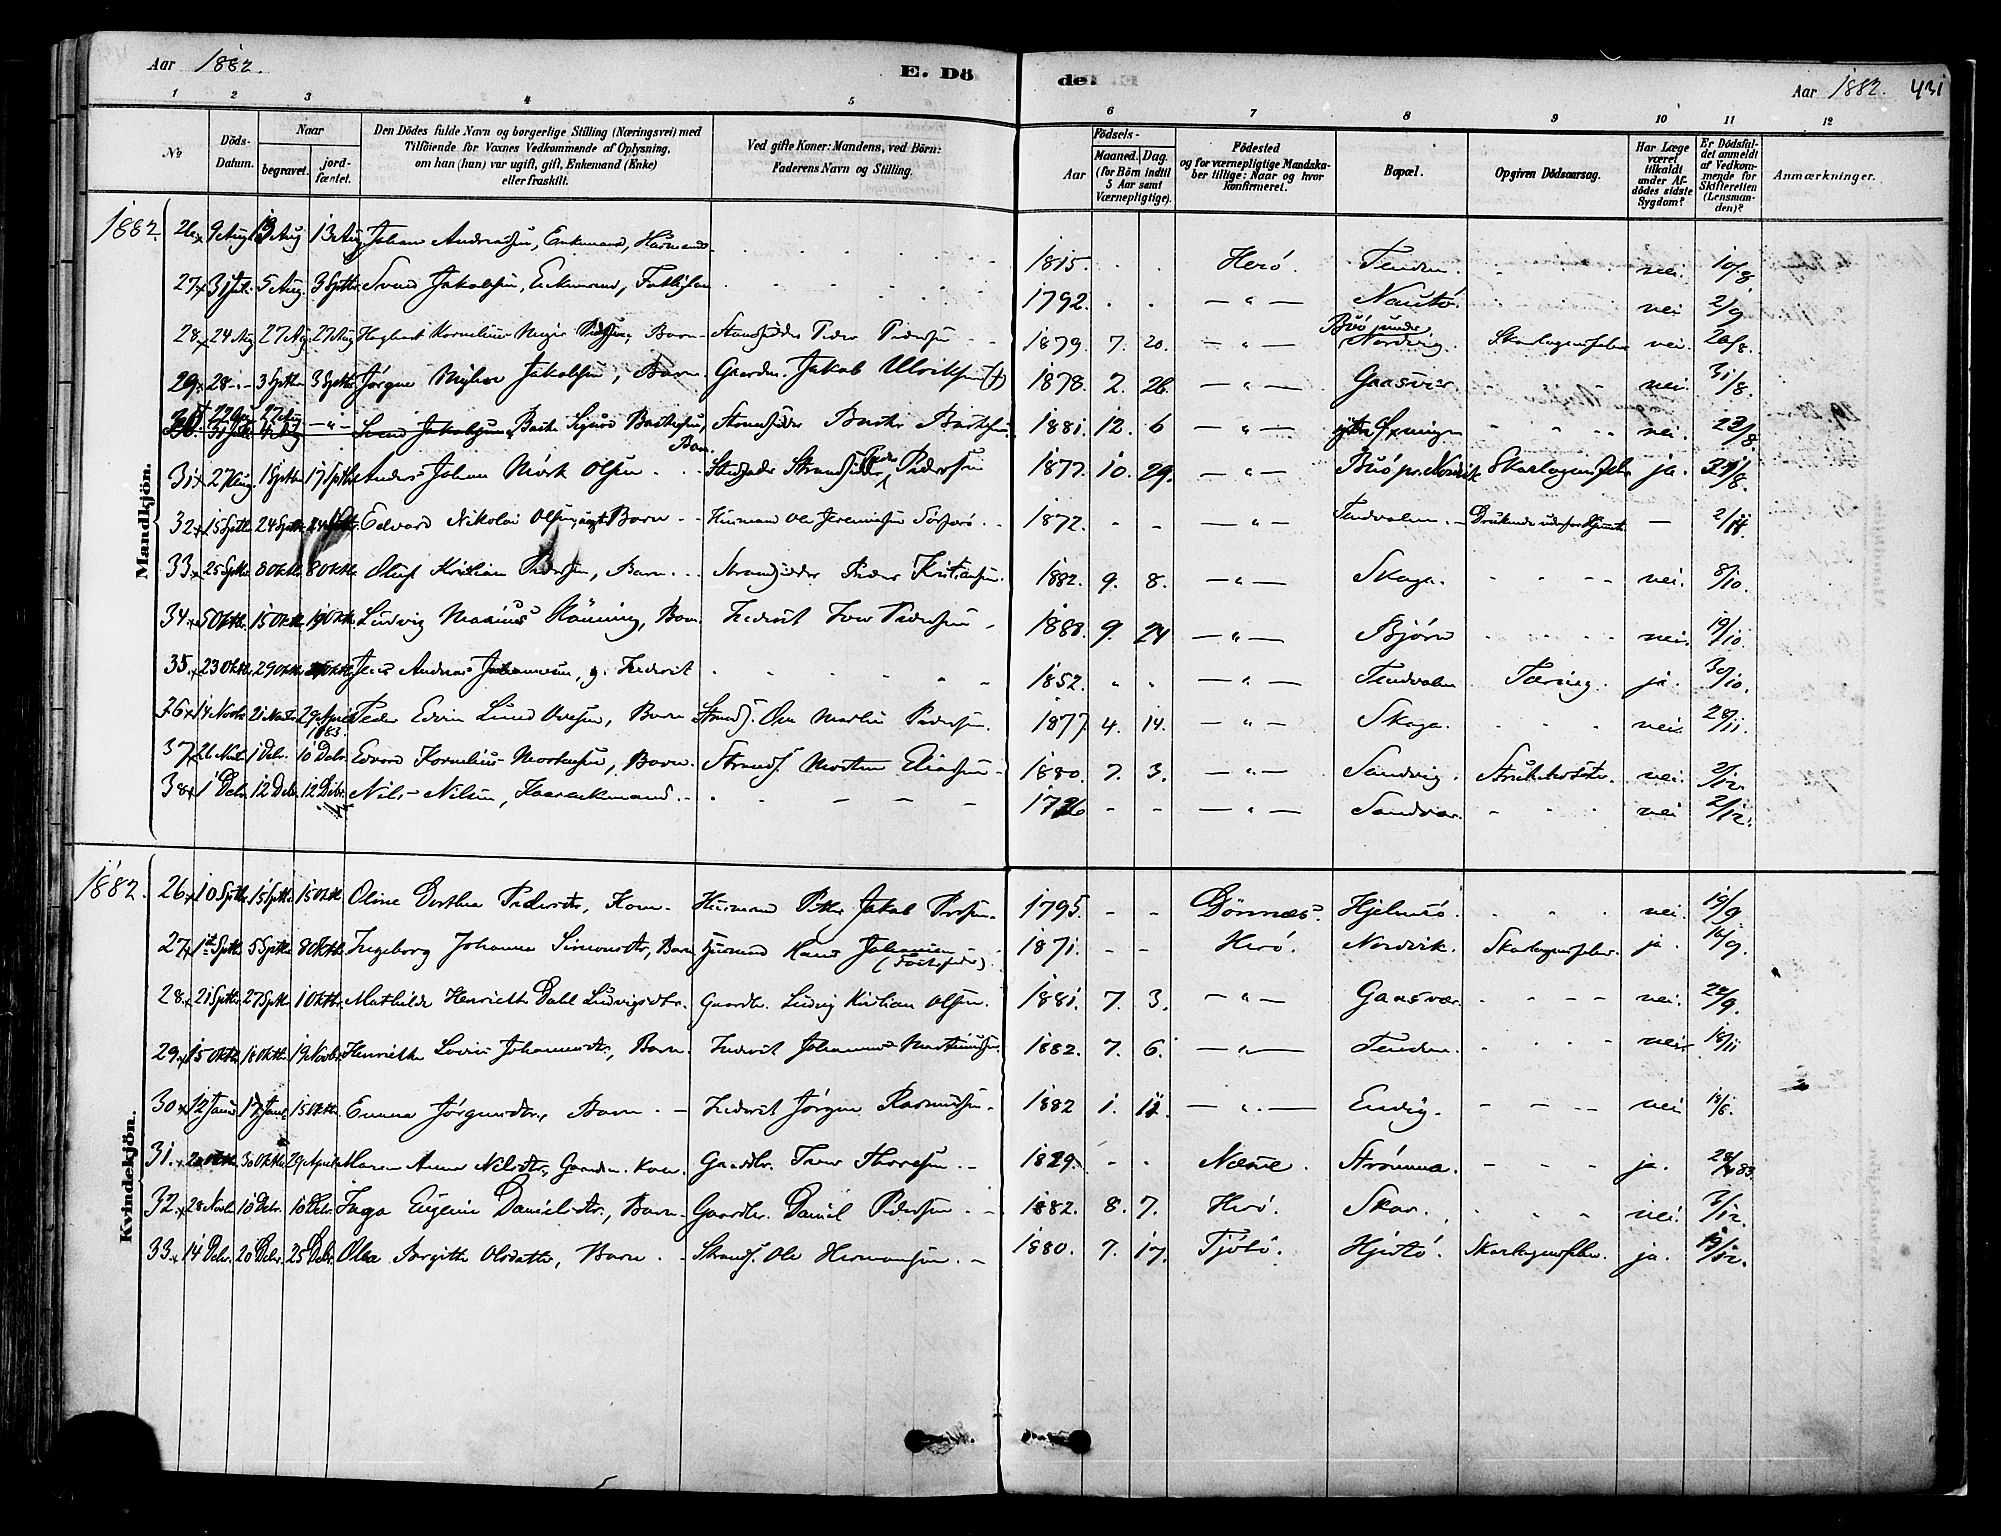 Aar 1882. E. Dö de. Aar 1882. 431
1 2 3 4 5 6 7 8 9 10 11 12
No Döds-Datum. Naar begravet. jordfæstet. Den Dödes fulde Navn og borgerlige Stilling (Næringsvei) med Tilföiende for Voxnes Vedkommende af Oplysning, om han (hun) var ugift, gift, Enkemand (Enke) eller fraskilt. Ved gifte Koner: Mandens, ved Börn: Faderens Navn og Stilling. Födsels- Aar Maaned. Dag. (for Börn indtil 5 Aar samt Værnepligtige). Födested og for værnepligtige Mandskaber tillige: Naar og hvor konfirmeret. Bopæl. Opgiven Dödsaarsag. Har Læge været tilkaldt under Afdödes sidste Sygdom? Er Dödsfaldet anmeldt af Vedkommende for Skifteretten (Lensmanden)? Anmærkninger.
Mandkjön.
1882. 26 9 Aug 13 Aug 13 Aug Johan Andreassen, Enkemand, - - 1815. - - Herö. Tenden. - nei. 10/8
27 31 Juli 5 Aug. 3 Septbr Svend Jakobsen, Enkemand, Fattiglem 1792. - - — " — Nautö. nei 2/9
28 24 Aug 27 Aug 27 Aug Hagbart Kornelius Meyer Pedersen, Barn - Strandsidder Peder Pedersen 1879. 7. 20. — " — Buö under Nordvig. Skarlagensfeber nei. 26/8.
29 28 - 3 Septbr 3 Septbr Jørgen Jakobsen, Barn. Gaardm. Jakob Ulriksen (+) 1878. 2. 26. — " — Gaasvær. nei. 31/8.
30 22 Aug 27 Aug — " — Sigurd Barn. Strandsidder 1881. 12. 6 — " — ytre Øxningen nei. 23/8
31 27 Aug. 1 Septbr 17 Septbr Anders Johan Mörk Olsen - - Strandsidder Pedersen 1877. 10. 29. — " — Buö pr. Nordvik Skarlagensfeber ja. 31/8.
32 15 Septbr 24 Septbr 24 Septbr. Edvard Nikolai Olsen, Barn - - Huusmand Ole Jeremiassen - - 1872. - - — " — Tendvalen. - Druknede udenfor Hjemmet — 2/11.
33 25 Septbr 8 Oktbr 8 Oktbr. Oluf Kristian Pedersen, Barn. - - Strandsidder Peder Kristiansen. 1882. 9. 8. — " — Skaga. - - - - nei. 8/10.
34 5 Oktbr. 15 Oktbr 15 Oktbr. Ludvig Marius Rönning, Barn. Inderst Iver Pedersen - 1888. 9. 24 — " — Björn nei. 19/10.
35. 23 Oktbr. 29 Oktbr. Oktbr. Jens Andreas Johannesen, g. Inderst - - 1852. " " — " — Tendvalen Tæring. ja. 30/10.
36 14 Novbr 21 Novbr 29 April 1883. Peder Edvin Lund Ovesen, Barn Strands. Ove Martin Pedersen. 1877. 4. 14. — " — Skaga. nei. 28/11.
37 26 Novbr 1 Debr. 10 Debr. Edvard Kornelius Mortensen, Barn. Strands. Morten Eliassen - 1880. 7. 3. — " — Sandvig. Strubehoste. nei. 2/12.
38 1 Debr. 12 Debr. 12 Debr. Nils Nilsen, - - 1726 - - — " — Sandvær. - - - nei 2/12.
Kvindekjön.
1882. 26 10 Septbr. 15 Septbr 15 Oktbr Oline Dorthea Pedersdtr, Kone - Huusmand Petter Jakob 1795. - - Dönnes. Hjelmsö. nei. 19/9.
27 1st Septbr 5 Septbr 8 Oktbr. Ingeborg Johanna Simonsdtr, Barn Huusmand Hans Johansen (Fosterfader). 1871. - - Herö. Nordvik. Skarlagensfeber. ja 16/9.
28. 21 Septbr. 27 Septbr 1 Oktbr. Mathilde Henriette Dahl Ludvigsdtr. Gaardbr. Ludvig Kristian Olsen. 1881. 7. 3. — " — Gaasvær. - - - - nei. 22/9.
29. 15 Oktbr. 18 Oktbr. 19 Novbr. Henriette Lovise Johannesdtr, Barn. Inderst Johannes Martinussen. 1882. 7. 6. — " — Tenden. - - - - nei. 18/11
30 12 Juni 17 Juni 15 Oktbr. Emma Jörgensdtr, Barn. - Inderst Jörgen Rasmussen. 1882 1. 11. — " — Envig. - - - - nei 18/6.
31. 20 Oktbr. 30 Oktbr. 29 April. Maren Anna Nilsdtr, Gaardm. Kone. Gaardbr. Thoresen. - 1829. - - Næsne. Strömma. - - - ja. 28/4 83.
32. 28 Novbr 10 Debr. 10 Debr. Inga Eugenie Danielsdtr., Barn. Gaardbr. Daniel Pedersen. - 1882. 8. 7. Herö. Skar. - - - nei. 3/12.
33. 14 Debr. 20 Debr. 25 Debr. Olea Borgitte Olsdatter, Barn. - Strands. Ole Hermansen. - 1880. 7. 17. Tjötö. Hjertö. Skarlagensfeber. ja. 19/12.